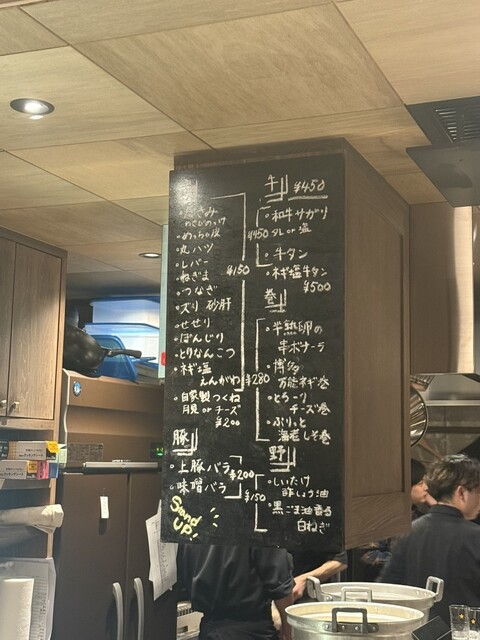 ささみ
わさびのっけ
めっちゃ皮
丸ハツ
レバー
ねぎま
つなぎ
ズリ 砂肝
せせり
ぼんじり
とりなんこつ
ネギ塩
えんがわ
¥150
自家製つくね
月見 or チーズ
¥200
豚
上豚バラ
味噌バラ
¥200
Stand
UP!
牛 ¥450
和牛サガリ
タレ or 塩
¥450
牛タン
ネギ塩牛タン
¥500
巻
半熟卵の
串ボナーラ
博多
万能ネギ巻
とろ〜り
チーズ巻
ぷりっと
海老しそ巻
¥280
野
しいたけ
酢しょう油
黒ごま油香る
白ねぎ
¥150